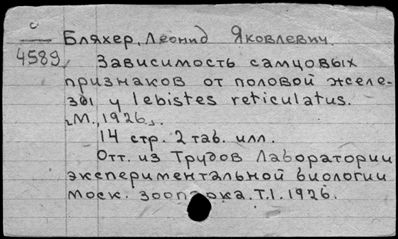 Бляхер, Леонид Яковлевич.
4589
Зависимость самцовых
признаков от половой желе-
зы у lebistes reticulatus.
М., 1926.
14 стр. 2 таб. илл.
Отт. из Трудов Лаборатории
экспериментальной биологии
Моск. зоопарка. Т.I. 1926.